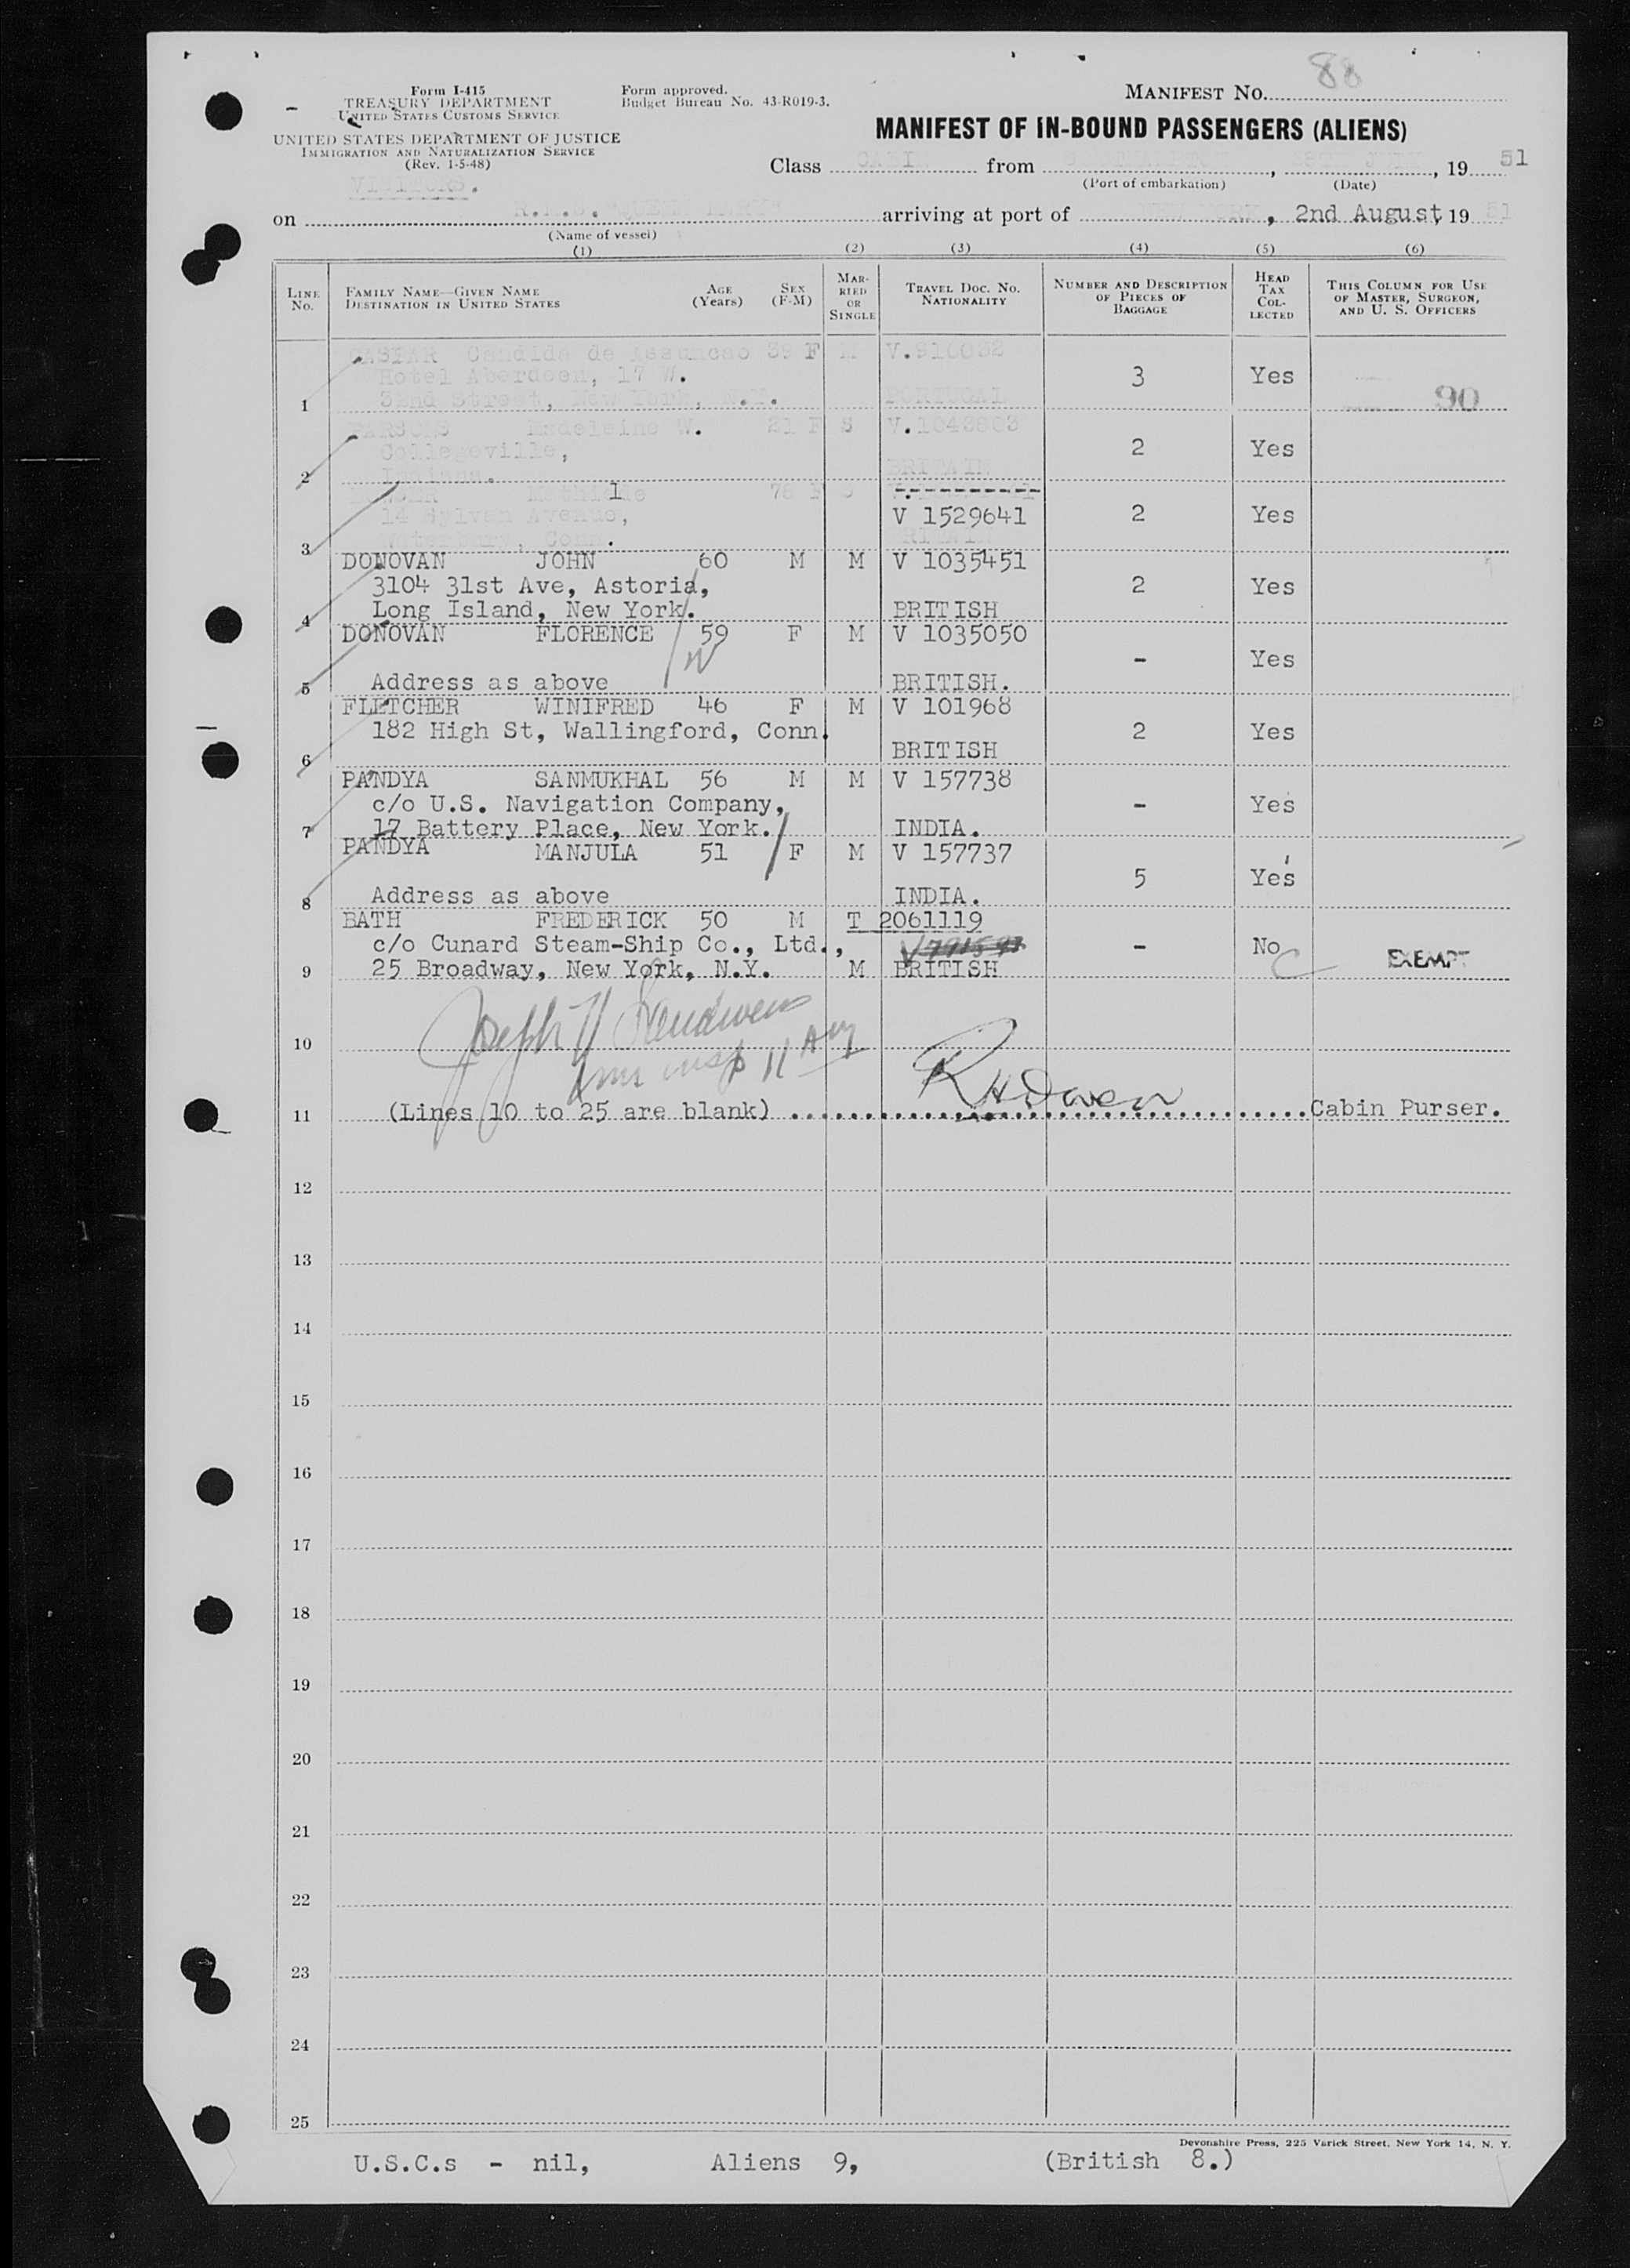 88
Form I-415
TREASURY DEPARTMENT
UNITED STATES CUSTOMS SERVICE
UNITED STATES DEPARTMENT OF JUSTICE
IMMIGRATION AND NATURALIZATION SERVICE
(Rev. 1-5-48)
VISITORS.
Form approved.
Budget Bureau No. 43-R019-3.
MANIFEST NO.
MANIFEST OF IN-BOUND PASSENGERS (ALIENS)
Class CABIN from , , 19 51
(Port of embarkation) (Date)
on R.M.S. QUEEN MARY arriving at port of NEW YORK, 2nd August, 19 51
(Name of vessel)
(1) (2) (3) (4) (5) (6)
LINE NO. FAMILY NAME—GIVEN NAME DESTINATION IN UNITED STATES AGE (Years) SEX (F-M) MARRIED OR SINGLE TRAVEL DOC. NO. NATIONALITY NUMBER AND DESCRIPTION OF PIECES OF BAGGAGE HEAD TAX COLLECTED THIS COLUMN FOR USE OF MASTER, SURGEON, AND U. S. OFFICERS
GASPAR Candida de Assuncao 39 F M V.910032
Hotel Aberdeen, 17 W. 3 Yes
1 32nd Street, New York, N.Y. PORTUGAL 90
PARSONS Madeleine W. 21 F S V.1043803
Collegeville, 2 Yes
2 Indiana. BRITAIN
78 F S
14 Sylvan Avenue, V 1529641 2 Yes
3 Waterbury, Conn. BRITAIN
DONOVAN JOHN 60 M M V 1035451
3104 31st Ave, Astoria, 2 Yes
4 Long Island, New York. BRITISH
DONOVAN FLORENCE 59 F M V 1035050
- Yes
5 Address as above BRITISH.
FLETCHER WINIFRED 46 F M V 101968
182 High St, Wallingford, Conn. 2 Yes
6 BRITISH
PANDYA SANMUKHAL 56 M M V 157738
c/o U.S. Navigation Company, - Yes
7 17 Battery Place, New York. INDIA.
PANDYA MANJULA 51 F M V 157737
5 Yes
8 Address as above INDIA.
BATH FREDERICK 50 M T 2061119
c/o Cunard Steam-Ship Co., Ltd., - No EXEMPT
9 25 Broadway, New York, N.Y. M BRITISH
Joseph
10 Imm insp 11 Aug
R H Owen
11 (Lines 10 to 25 are blank) Cabin Purser.
12
13
14
15
16
17
18
19
20
21
22
23
24
25
Devonshire Press, 225 Varick Street, New York 14, N. Y.
U.S.C.s - nil, Aliens 9, (British 8.)